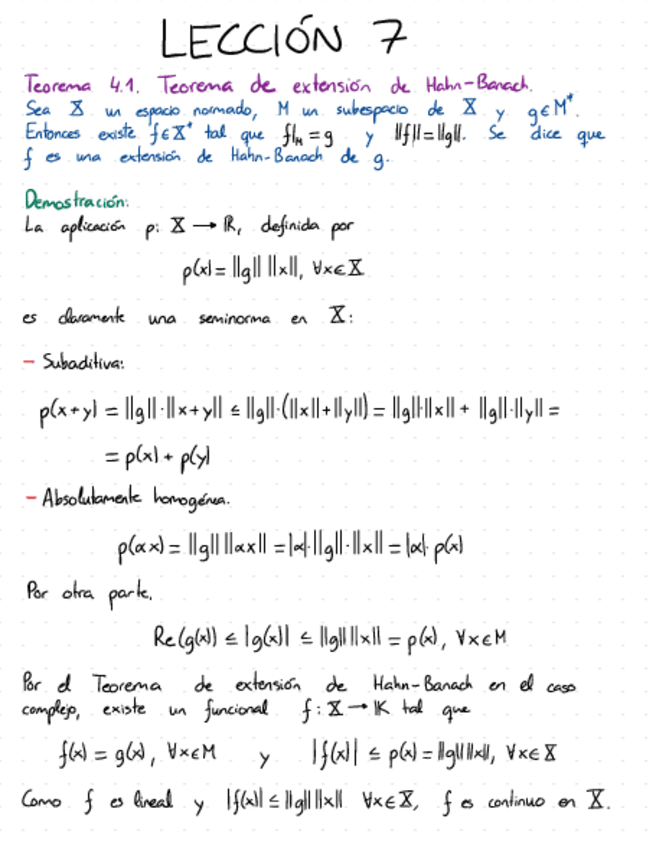 LECCIÓN 7
Teorema 4.1. Teorema de extensión de Hahn-Banach.
Sea X un espacio normado, M un subespacio de X y g∈M*.
Entonces existe f∈X* tal que f|ₘ = g y ||f|| = ||g||. Se dice que
f es una extensión de Hahn-Banach de g.
Demostración:
La aplicación p: X → ℝ, definida por
p(x) = ||g|| ||x||, ∀x∈X
es claramente una seminorma en X:
- Subaditiva:
p(x+y) = ||g||·||x+y|| ≤ ||g||·(||x||+||y||) = ||g||·||x|| + ||g||·||y|| =
= p(x) + p(y)
- Absolutamente homogénea.
p(αx) = ||g|| ||αx|| = |α|·||g||·||x|| = |α|· p(x)
Por otra parte,
Re(g(x)) ≤ |g(x)| ≤ ||g|| ||x|| = p(x), ∀x∈M
Por el Teorema de extensión de Hahn-Banach en el caso
complejo, existe un funcional f: X → K tal que
f(x) = g(x), ∀x∈M y |f(x)| ≤ p(x) = ||g|| ||x||, ∀x∈X
Como f es lineal y |f(x)| ≤ ||g|| ||x|| ∀x∈X, f es continuo en X.